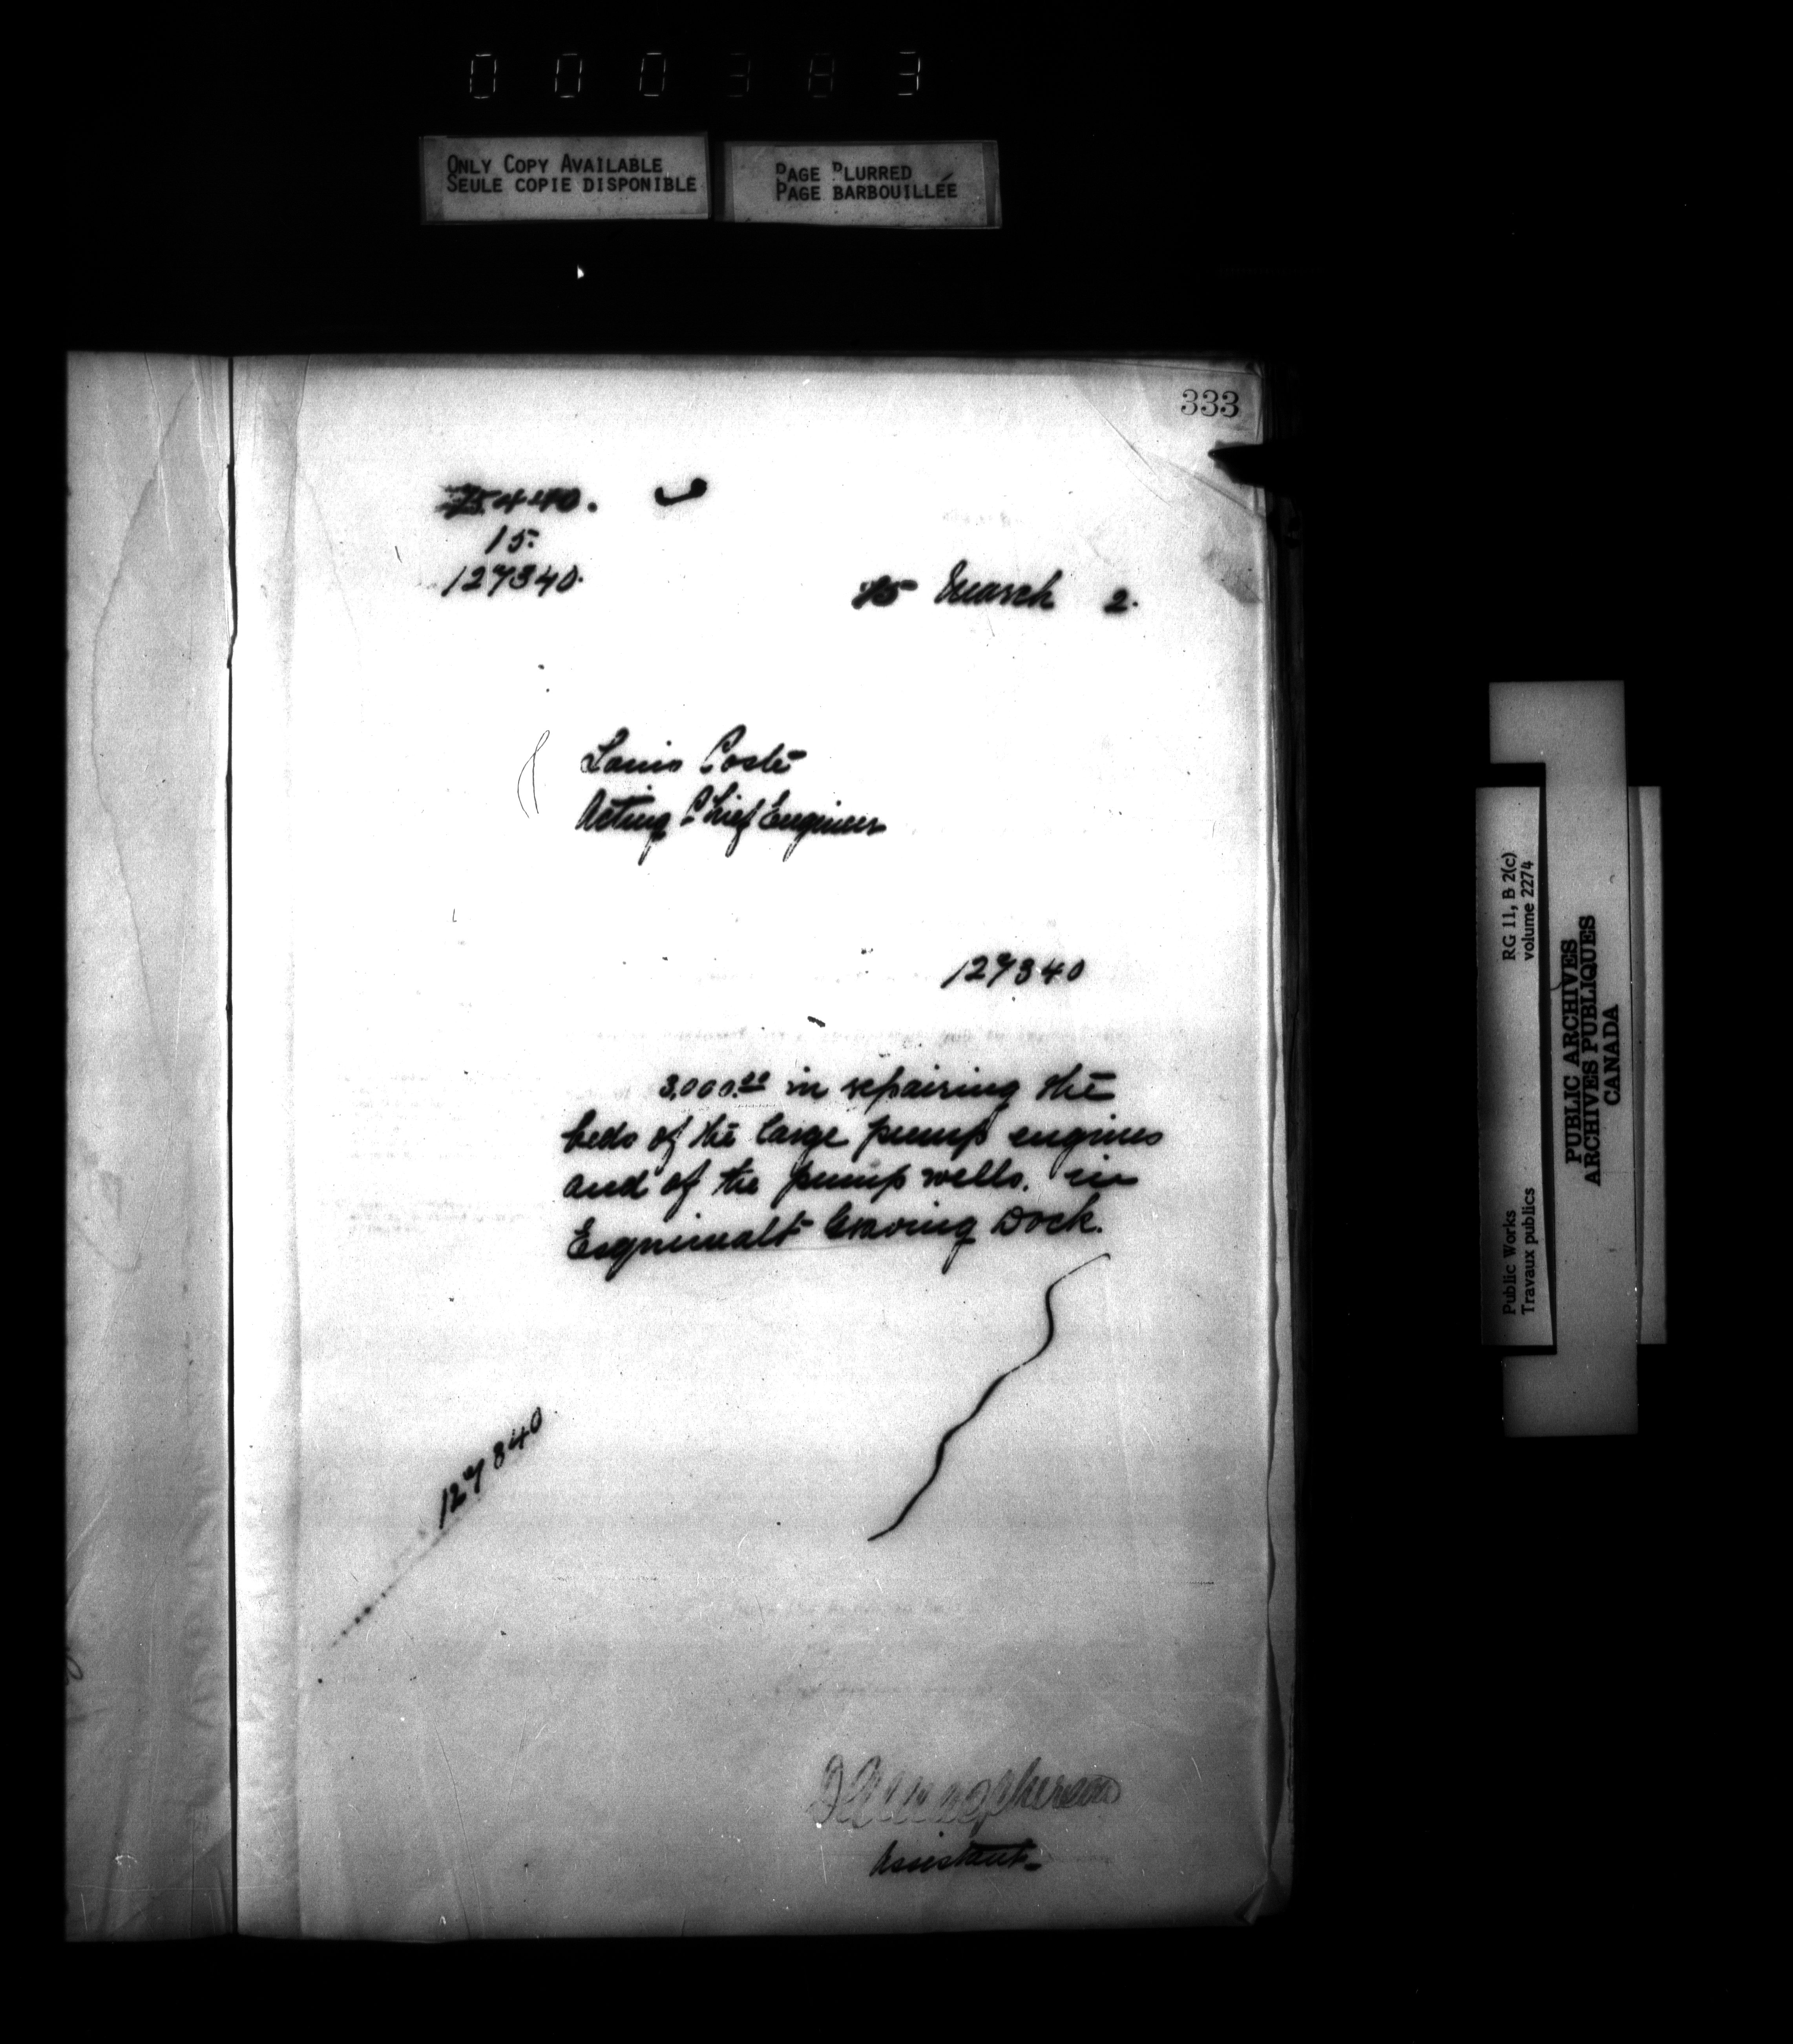 000383
ONLY COPY AVAILABLE
SEULE COPIE DISPONIBLE
PAGE BLURRED
PAGE BARBOUILLÉE
333
15.
127340.
March 2.
Louis Coste
Acting Chief Engineer
127340
3,000.00 in repairing the
beds of the large pump engines
and of the pump wells. in
Esquimalt Graving Dock.
127340
Assistant
RG 11, B 2(c)
volume 2274
Public Works
Travaux publics
PUBLIC ARCHIVES
ARCHIVES PUBLIQUES
CANADA